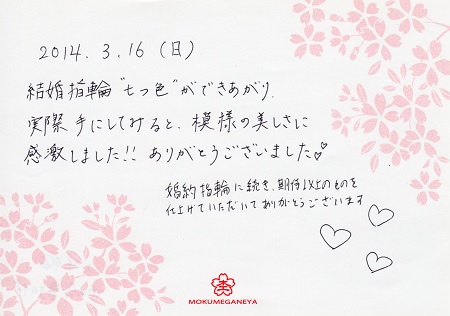 2014. 3.16 (日)
結婚指輪"七つ色"ができあがり、
実際手にしてみると、模様の美しさに
感激しました!! ありがとうございました♡
婚約指輪に続き、期待以上のものを
仕上げていただいてありがとうございます
MOKUMEGANEYA